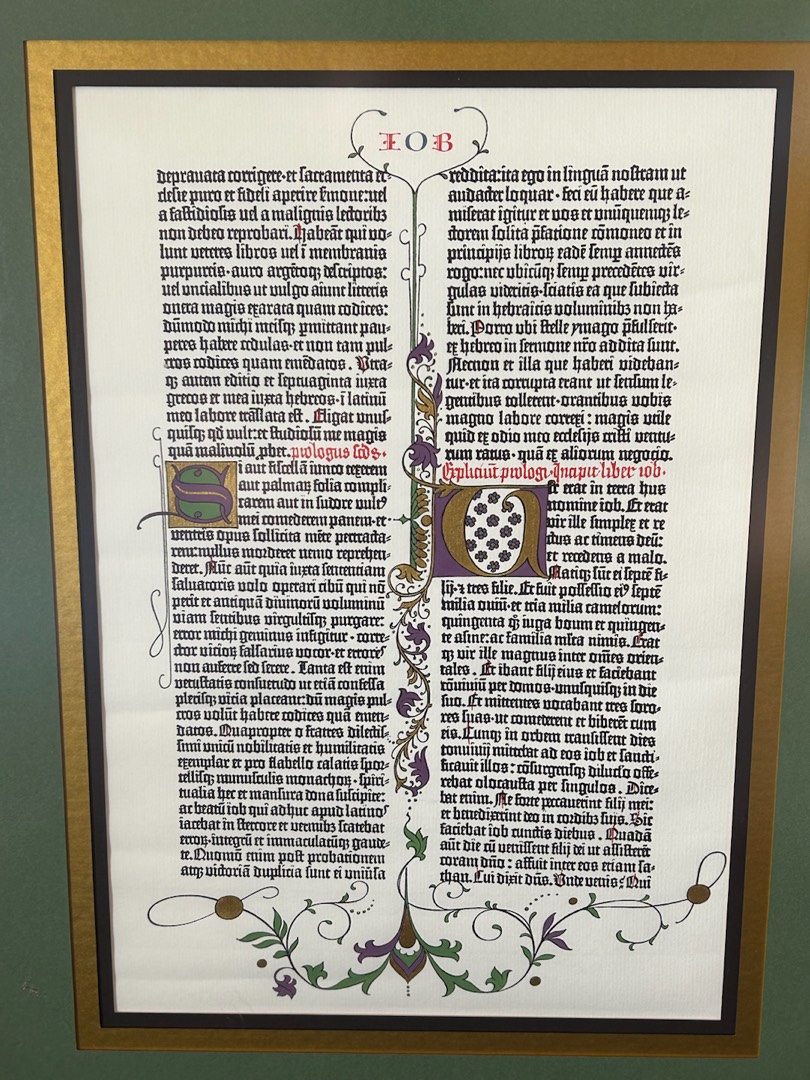 IOB
deprauata corrigere·et sacramenta ec-
clesie puro et fideli aperire ſmone:uel
a fastidiosis uel a malignis lectoribꝫ
non debeo reprobari. Habeāt qui vo-
lunt veteres libros uel ī membranis
purpureis·auro argētoqꝫ descriptos:
uel uncialibus ut vulgo aiunt litteris
onera magis exarata quam codices:
dūmodo michi meisqꝫ ꝑmittant pau-
peres habere cedulas·et non tam pul-
cros codices quam emēdatos. Vtra-
qꝫ autem editio et septuaginta iuxta
grecos et mea iuxta hebreos·ī latinū
meo labore trāslata est. Eligat vnus-
quisqꝫ qd vult:et studiosū me magis
quā maliuolū ꝓbet. prologus scds·
Si aut fiscellā iunco texerem
aut palmaꝝ folia compli-
carem aut in sudore vultꝰ
mei comederem panem·et
ventris opus sollicita mēte pertracta-
rem:nullus morderet nemo reprehen-
deret. Nūc aūt quia iuxta sententiam
saluatoris volo operari cibū qui nō
perit et antiquā diuinorū voluminū
viam sentibus virgultisqꝫ purgare:
error michi geminus infigitur·corre-
ctor viciorꝫ falsarius vocor·et errores
non auferre sed serere. Tanta est enim
vetustatis consuetudo ut etiā confessa
plerisqꝫ vicia placeant:dū magis pul-
cros volūt habere codices quā emen-
datos. Quapropter o fratres dilectis-
simi unicū nobilitatis et humilitatis
exemplar et pro flabello calatis spor-
tellisqꝫ munusculis monachoꝝ·spiri-
tualia hec et mansura dona suscipite:
ac beatū iob qui adhuc apud latinos
iacebat in stercore et vermibꝫ scatebat
erroꝝ·integrū et immaculatūqꝫ gaude-
te. Quomō enim post probationem
atqꝫ victoriā duplicia sunt ei vniūsa
reddita:ita ego in linguā nostram ut
audacter loquar·feci eū habere que a-
miserat igitur et vos et vnūquemqꝫ le-
ctorem solita p̄fatione cōmoneo et in
principijs libroꝝ eadē semꝑ annectēs
rogo:nec vbicūqꝫ semꝑ precedētes vir-
gulas videritis·sciatis ea que subiecta
sunt in hebraicis voluminibꝫ non ha-
beri. Porro vbi stelle ymago p̄fulserit·
ex hebreo in sermone nr̄o addita sunt.
Necnon et illa que haberi videban-
tur·et ita corrupta erant ut sensum le-
gentibus tollerent·orantibus vobis
magno labore correxi: magis vtile
quid ex odio meo ecclesijs cristi ventu-
rum ratus·quā ex aliorum negocio.
Expliciūt prologi·Incipit liber iob·
Vir erat in terra hus
nomine iob. Et erat
vir ille simplex et re
ctus ac timens deū:
et recedens a malo.
Natiqꝫ sūt ei septē fi-
lij·⁊ tres filie. Et fuit possessio eiꝰ septē
milia ouiū·et tria milia camelorum:
quingenta qꝫ iuga boum et quingen-
te asine:ac familia mlta nimis. Erat
qꝫ vir ille magnus inter om̄es orien-
tales. Et ibant filij eius et faciebant
cōuiuiū per domos·vnusquisqꝫ in die
suo. Et mittentes vocabant tres soro-
res suas·ut comederent et biberēt cum
eis. Cunqꝫ in orbem transissent dies
conuiuij mittebat ad eos iob et sancti-
ficauit illos: cōsurgensqꝫ diluclo offe-
rebat olocausta per singulos. Dice-
bat enim. Ne forte peccauerint filij mei:
et benedixerint deo in cordibꝫ suis. Sic
faciebat iob cunctis diebus. Quadā
aūt die cū venissent filij dei ut assisterēt
coram dn̄o: affuit inter eos etiam sa-
than. Cui dixit dn̄s. Vnde venis? Qui